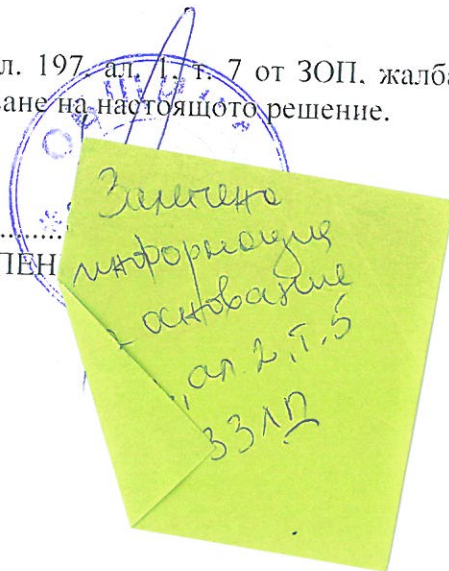 л. 197, ал. 1, т. 7 от ЗОП, жалба
ване на настоящото решение.
ОБЩИНА
ПЕН
Заличена
информация
основание
ал. 2, т. 5
ЗЗЛД